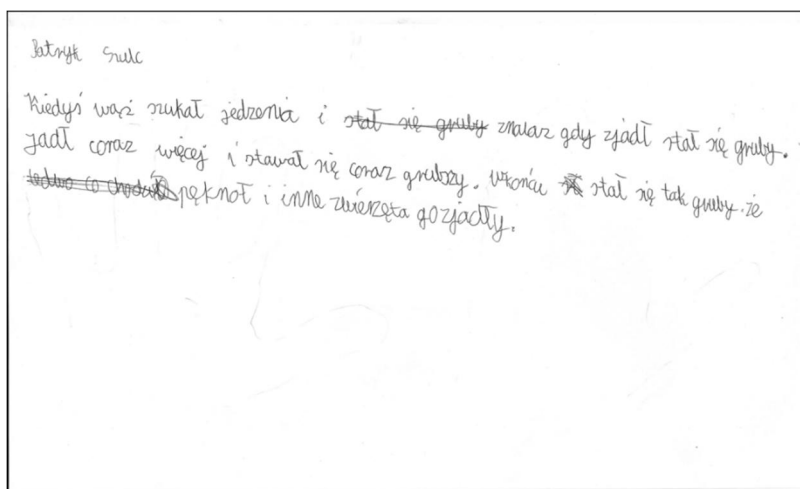 Patryk Szulc
Kiedyś wąż szukał jedzenia i stał się gruby znalaz gdy zjadł stał się gruby.
Jadł coraz więcej i stawał się coraz grubszy. wkońcu stał się tak gruby. że
ledwo co chodził pęknoł i inne zwierzęta gozjadły.